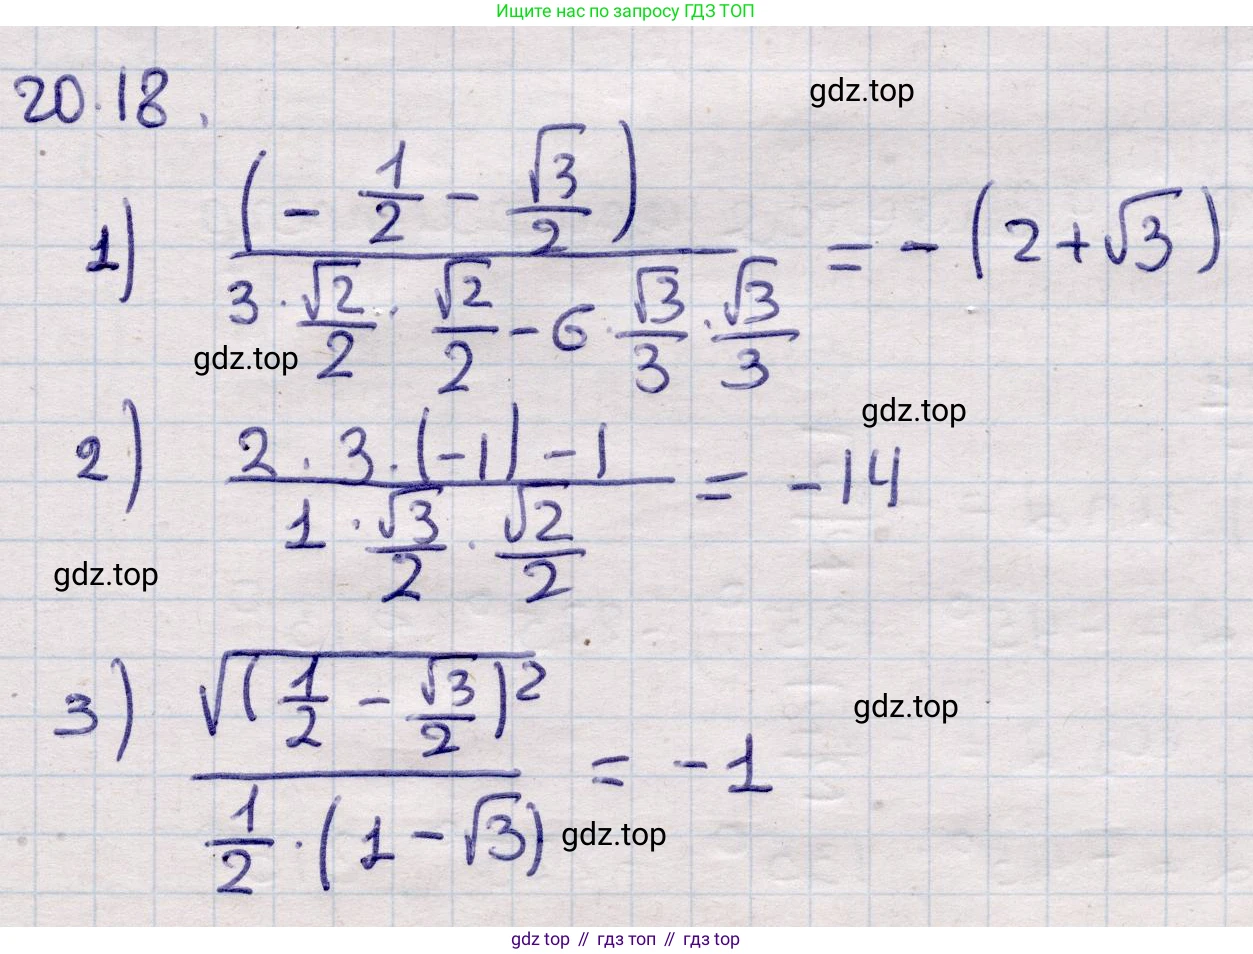 Ищите нас по запросу ГДЗ ТОП
20.18.
gdz.top
1) (- 1/2 - √3/2) / (3 · √2/2 · √2/2 - 6 · √3/3 · √3/3) = - (2 + √3)
gdz.top
gdz.top
2) (2 · 3 · (-1) - 1) / (1 · √3/2 · √2/2) = -14
gdz.top
3) √((1/2 - √3/2)²) / (1/2 · (1 - √3)) = -1
gdz.top
gdz.top
gdz top // гдз топ // гдз top